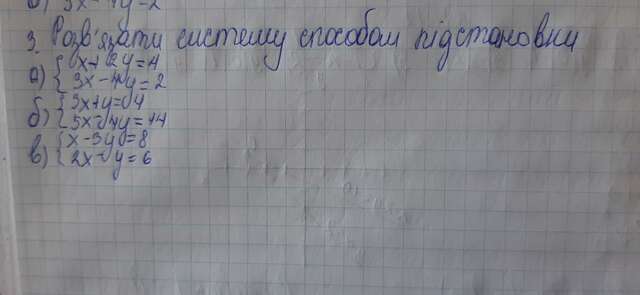 3x - 4y = 2
3. Розв'язати систему способом підстановки
а) { x + 2y = 4
3x - 4y = 2
б) { 3x + y = 4
5x - 4y = 14
в) { x - 3y = 8
2x - y = 6